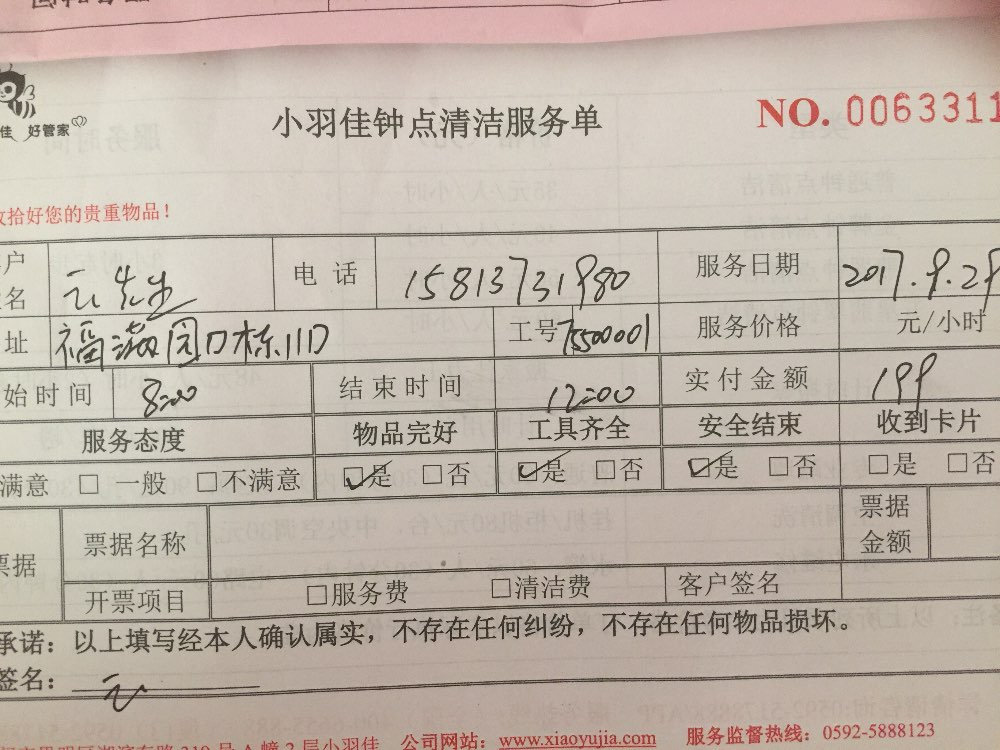 小羽佳钟点清洁服务单
NO. 0063311
佳 好管家
拾好您的贵重物品！
户 名 云先生 电 话 15813731980 服务日期 2017.9.29
址 福满园D栋11D 工号 75500001 服务价格 元/小时
始时间 8:00 结束时间 12:00 实付金额 199
服务态度 物品完好 工具齐全 安全结束 收到卡片
满意 □ 一般 □不满意 ☑是 □否 ☑是 □否 ☑是 □否 □是 □否
票据 票据名称 票据金额
开票项目 □服务费 □清洁费 客户签名
承诺：以上填写经本人确认属实，不存在任何纠纷，不存在任何物品损坏。
签名：云
公司网站：www.xiaoyujia.com 服务监督热线：0592-5888123